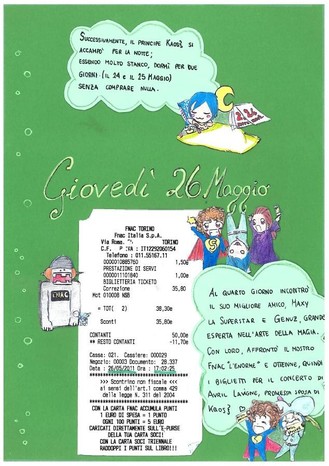 Successivamente, il principe Kaos}, si
accampò per la notte;
essendo molto stanco, dormì per due
giorni (il 24 e il 25 Maggio)
senza comprare nulla.
Giovedì 26 Maggio
FNAC TORINO
Fnac Italia S.p.A.
Via Roma, TORINO
C.F. P.IVA : IT12292060154
Telefono : 011.55167.11
0000010885760 1,50e
PRESTAZIONE DI SERVI
0000011101840 1,00e
BIGLIETTERIA TICKETO
Correzione 35,80
Mct 010008 NSB
= TOT( 2) 38,30e
Sconti 35,80e
CONTANTI 50,00e
** RESTO CONTANTI -11,70e
Cassa: 021. Cassiere: 000029
Negozio: 00003 Documento: 28.337
Data : 26/05/2011 Ora : 17:02:25
>>> Scontrino non fiscale <<
ai sensi dell'art.1 comma <<
della legge N. 311 del 2004
CON LA CARTA FNAC ACCUMULA PUNTI
1 EURO DI SPESA = 1 PUNTO
OGNI 100 PUNTI = 5 EURO
CARICATI DIRETTAMENTE SULL'E-PURSE
DELLA TUA CARTA SOCI!
CON LA CARTA SOCI TRIENNALE
RADDOPPI I PUNTI SUI LIBRI!!!
FNAC
Al quarto giorno incontrò
il suo migliore amico, Maxy
la Superstar e Genuz, grande
esperta nell'arte della magia.
Con loro, affrontò il mostro
Fnac "l'enorme" e ottenne, quindi
i biglietti per il concerto di
Avril Lavigne, promessa sposa di
Kaos}